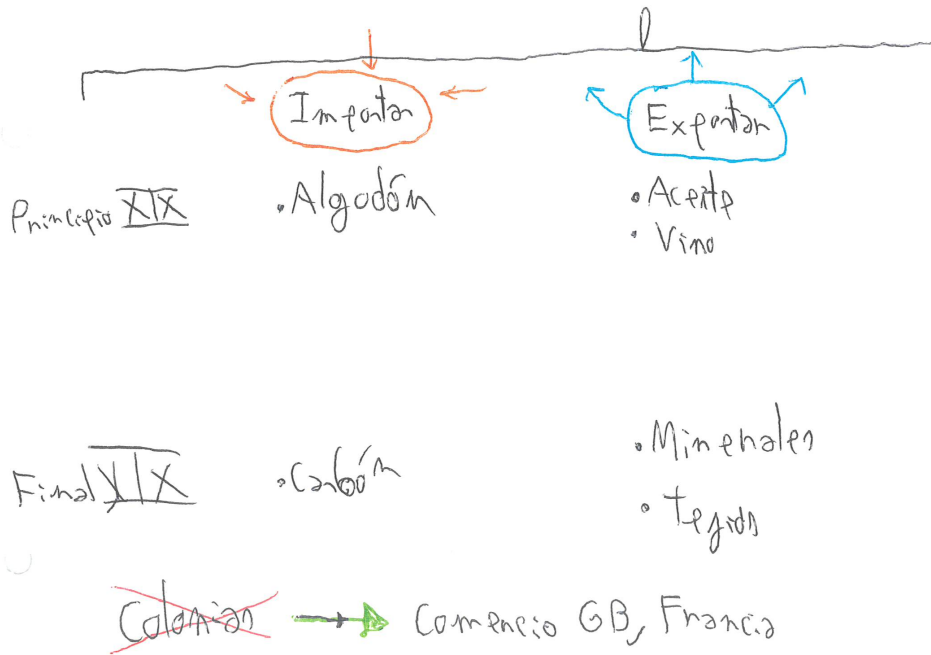 Importar Exportar
Principio XIX • Algodón • Aceite
• Vino
Final XIX • Carbón • Minerales
• Tejidos
Colonias → Comercio GB, Francia